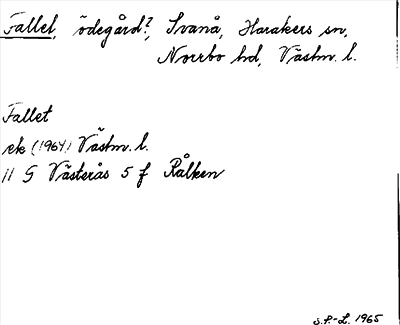 Fallet, ödegård?, Svanå, Harakers sn,
Norrbo hd, Västm. l.
Fallet
ek (1964) Västm. l.
11 G Västerås 5 f Rålken
S.P.-L. 1965